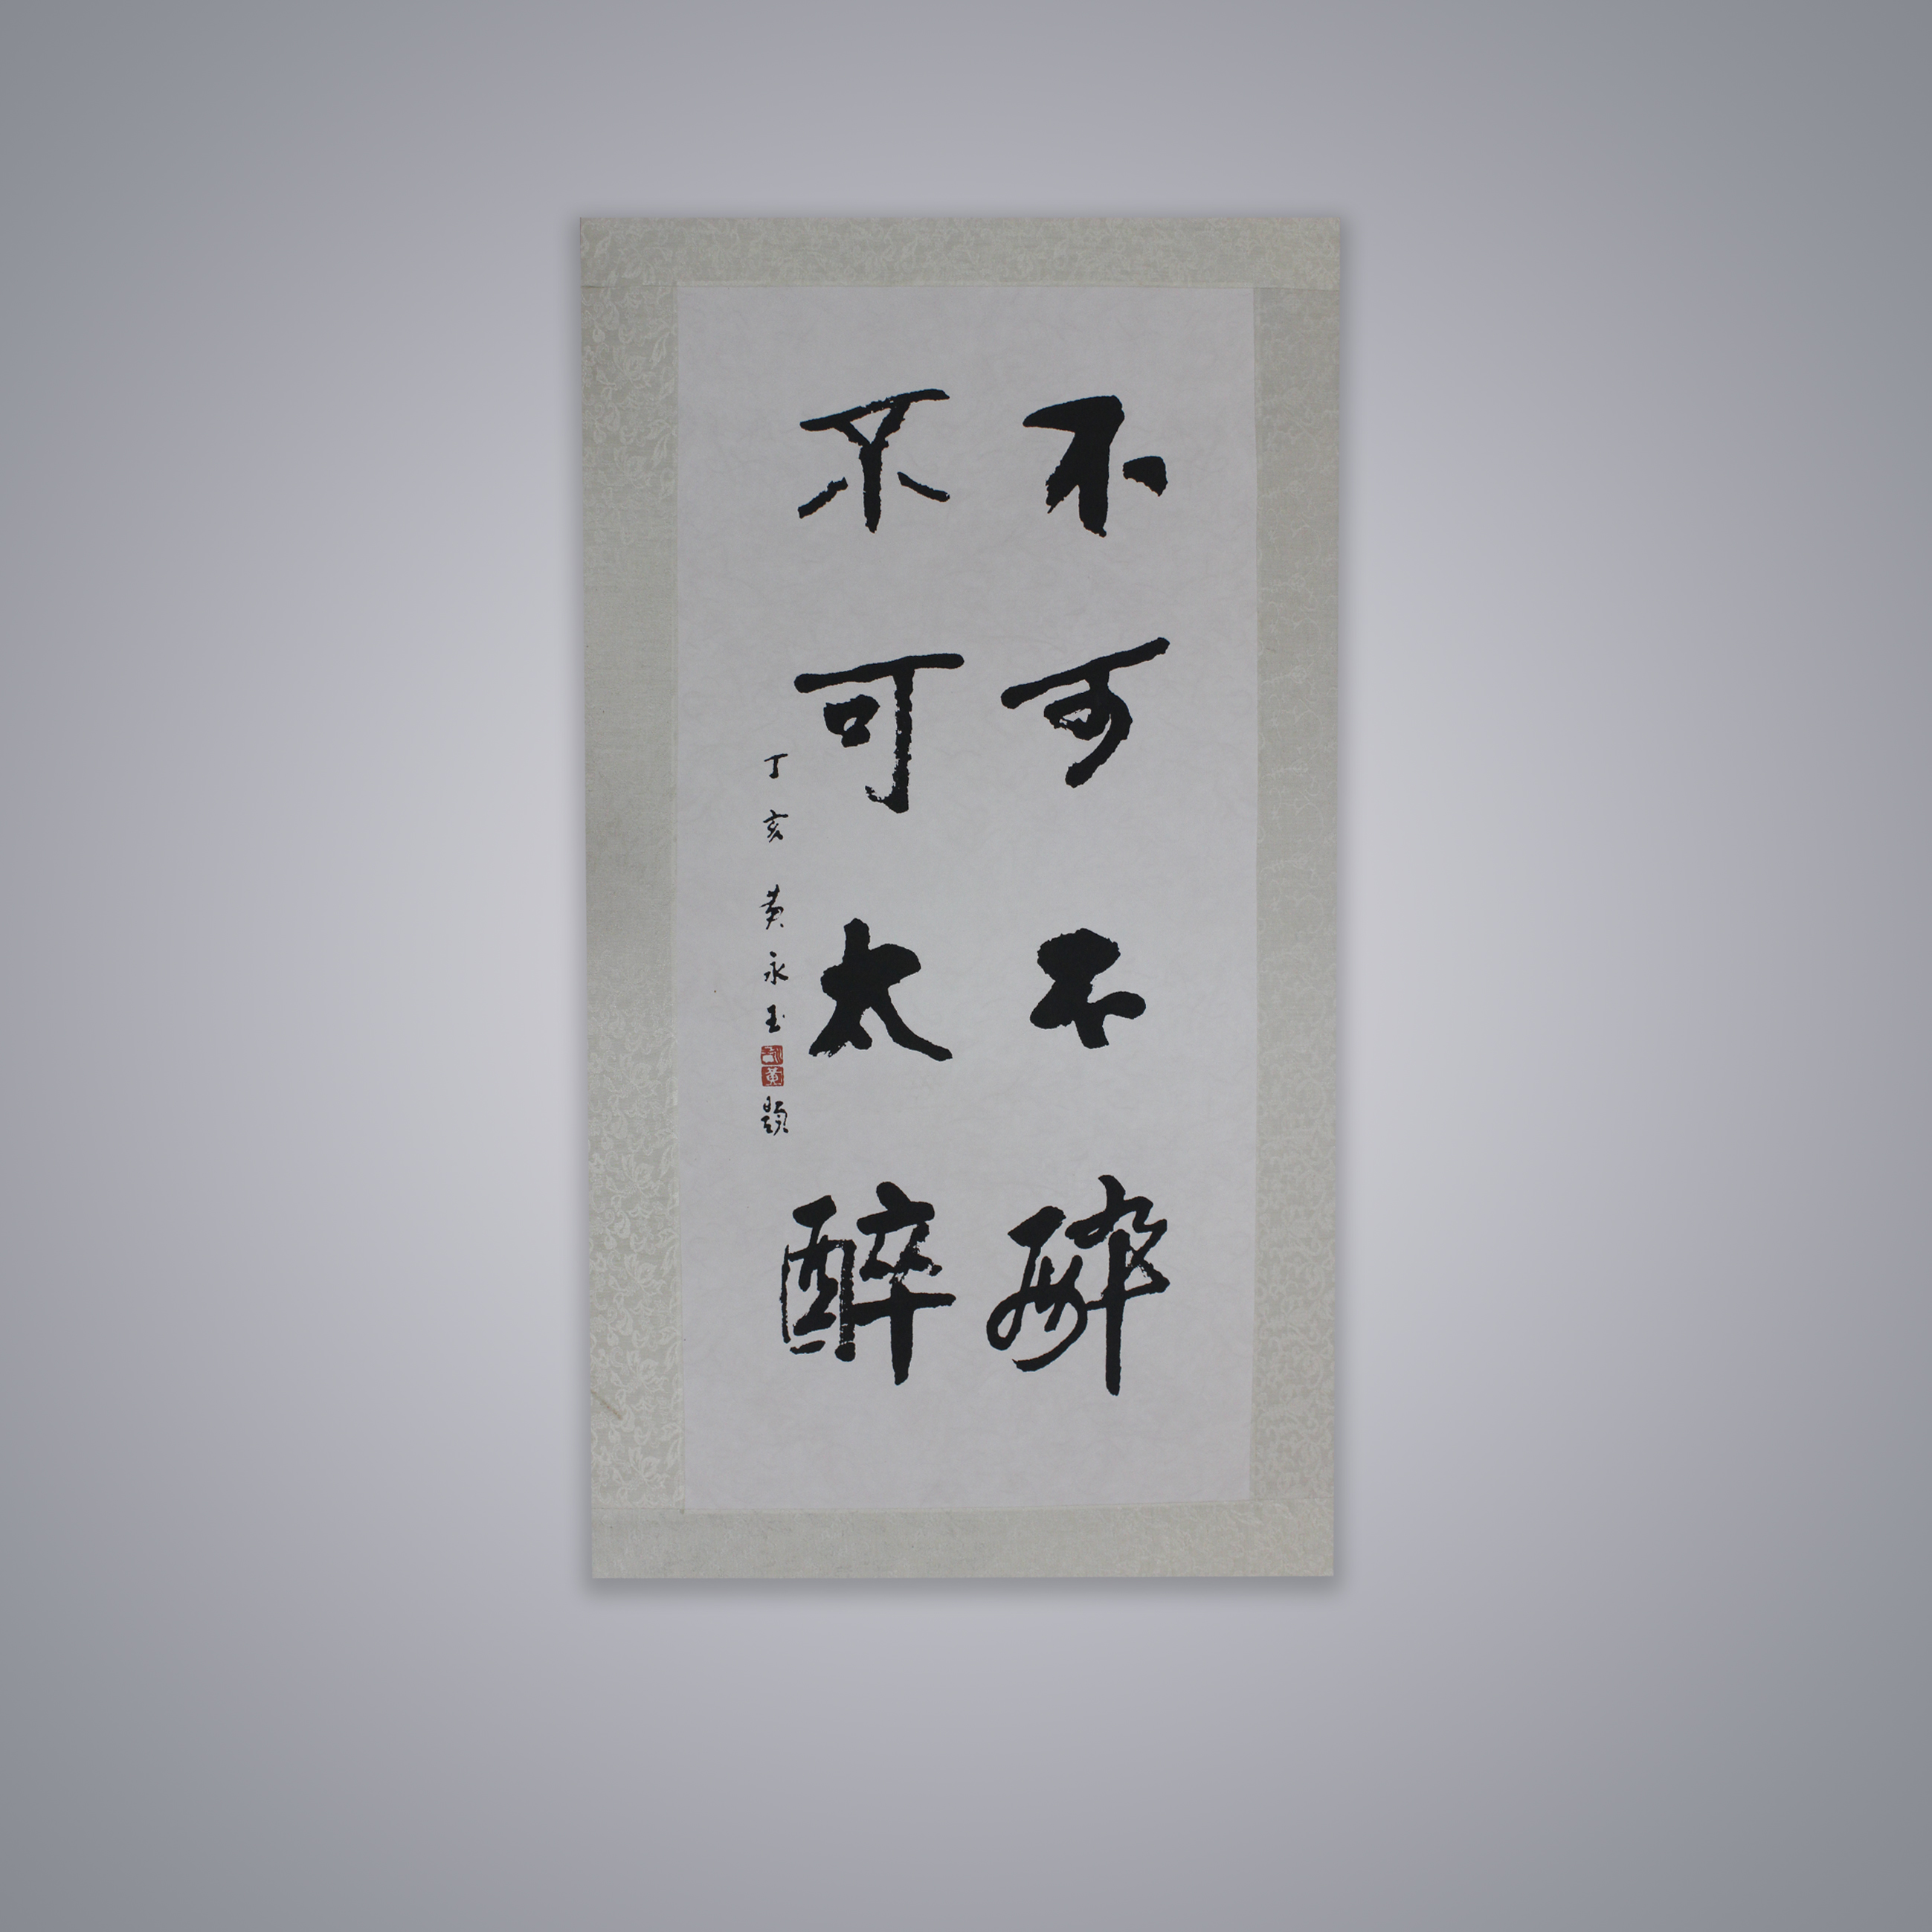 不可不醉
不可太醉
丁亥 黄永玉 題